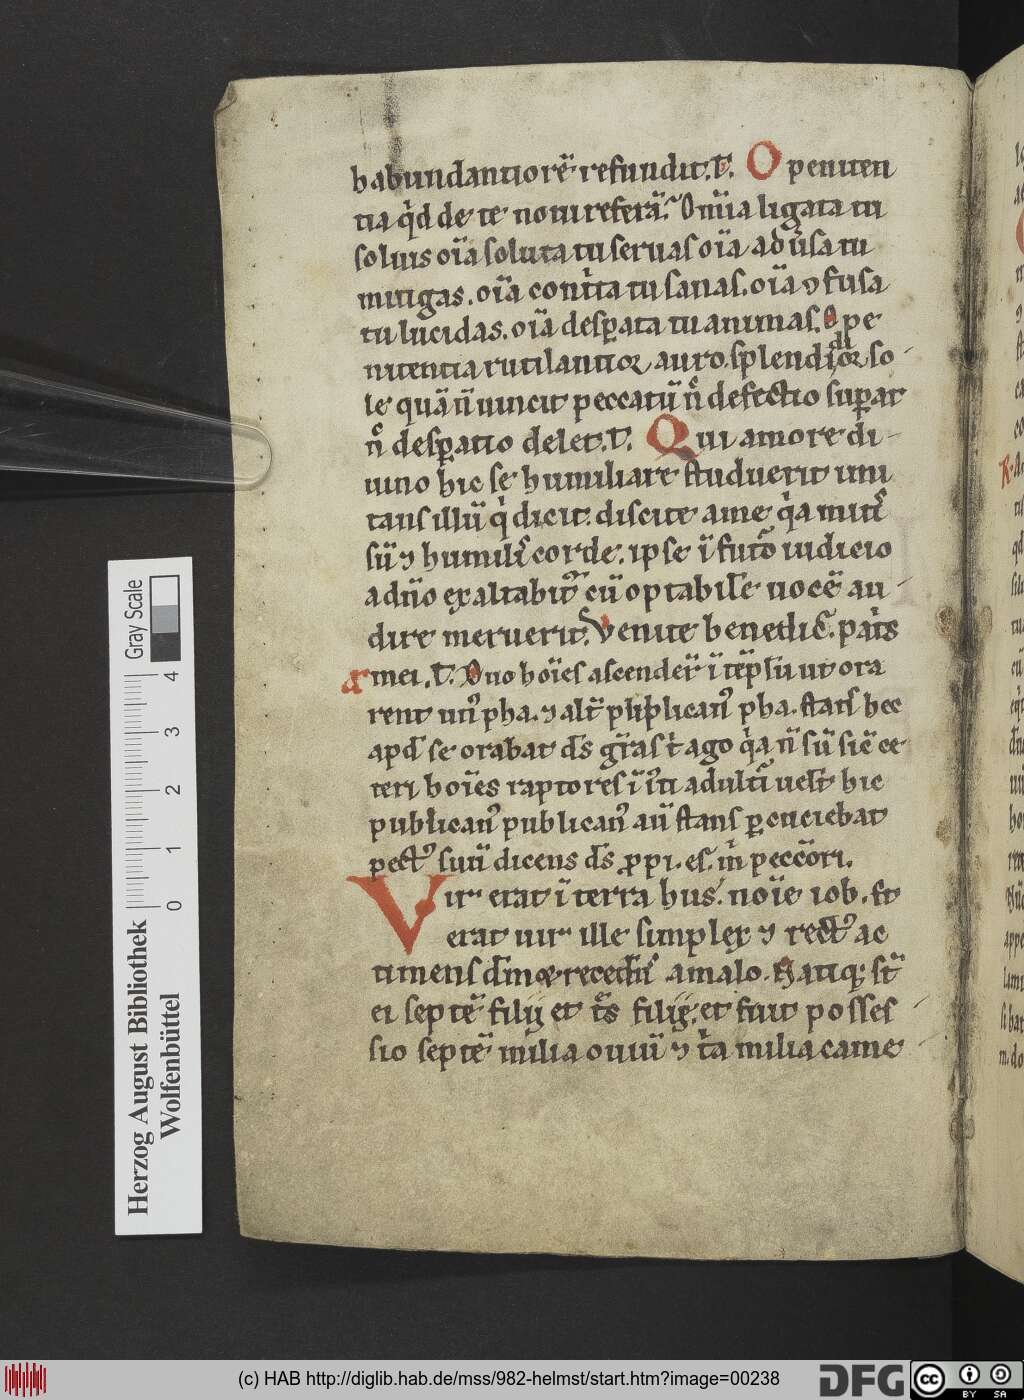 habundantiorē refundit. T. O peniten
tia qͥd de te noui referā. Om̄ia ligata tu
soluis oīa soluta tu seruas oīa aduˀsa tu
mitigas. oīa contͥta tu sanas. oīa ꝯfusa
tu lucidas. oīa desꝑata tu animas. O pe
nitentia rutilantior auro. splendidior so
le quā n̄ uincit peccatū nͦ defectio suꝑat
nͦ desꝑatio delet. T. Qui amore di
uino hic se humiliare studuerit imi
tans illū qͥ dicit. discite a me qͥa mitis
sū ⁊ humilis corde. ipse ī futo iudicio
a dn̄o exaltabitͬ cū optabilē uocē au
dire meruerit. Venite benedic̄. patͥs
mei. T. Duo hoīes ascenderᷣ ī tēplū ut ora
rent unꝰ pha. ⁊ altͬ puplicanꝰ pha. stans hec
apd̄ se orabat ds̄ grās tͥ ago qͥa n̄ sū sic̄ ce
teri hoīes raptores ī iͥti adultͥ uelt̄ hic
publicanꝰ publicanꝰ aū stans ꝑcuciebat
pectꝰ suū dicens ds̄ ꝓpi. es. mͥ peccōri.
Vir erat ī terra hus. noīe iob. Et
erat uir ille simplex ⁊ rectꝰ ac
timens dm̄ ⁊ recedn̄s a malo. Natiqꝫ st̄
ei septē filij et tͤs filię. et fuit posses
sio septē milia ouiū ⁊ tͥa milia came
Herzog August Bibliothek
Wolfenbüttel
0 1 2 3 4
Gray Scale
(c) HAB http://diglib.hab.de/mss/982-helmst/start.htm?image=00238
DFG
cc BY SA